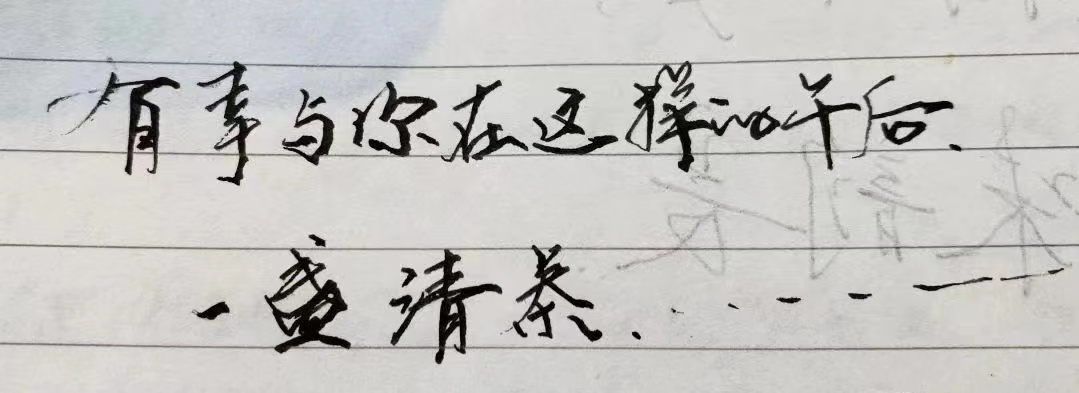 有幸与你在这样的午后.
一盛清茶.……---